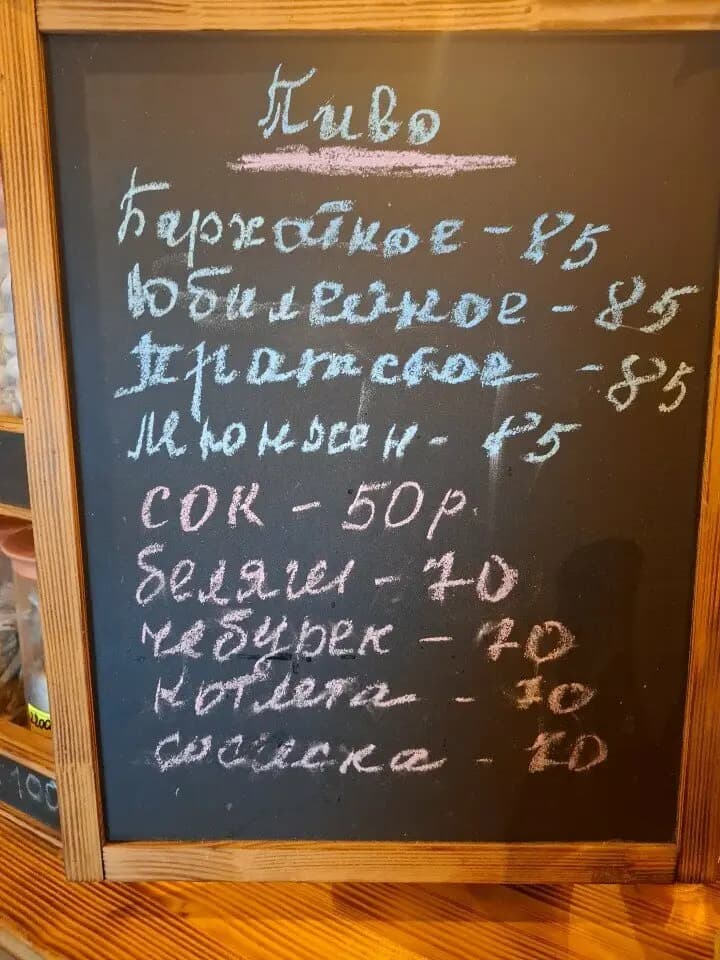 Пиво
Бархатное - 85
Юбилейное - 85
Пражское - 85
Мюнхен - 85
СОК - 50р.
беляши - 70
чебурек - 70
котлета - 70
сосиска - 70
100